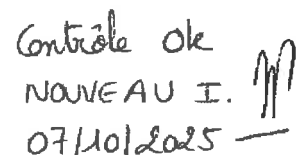 Contrôle Ok
NOUVEAU I.
07/10/2025